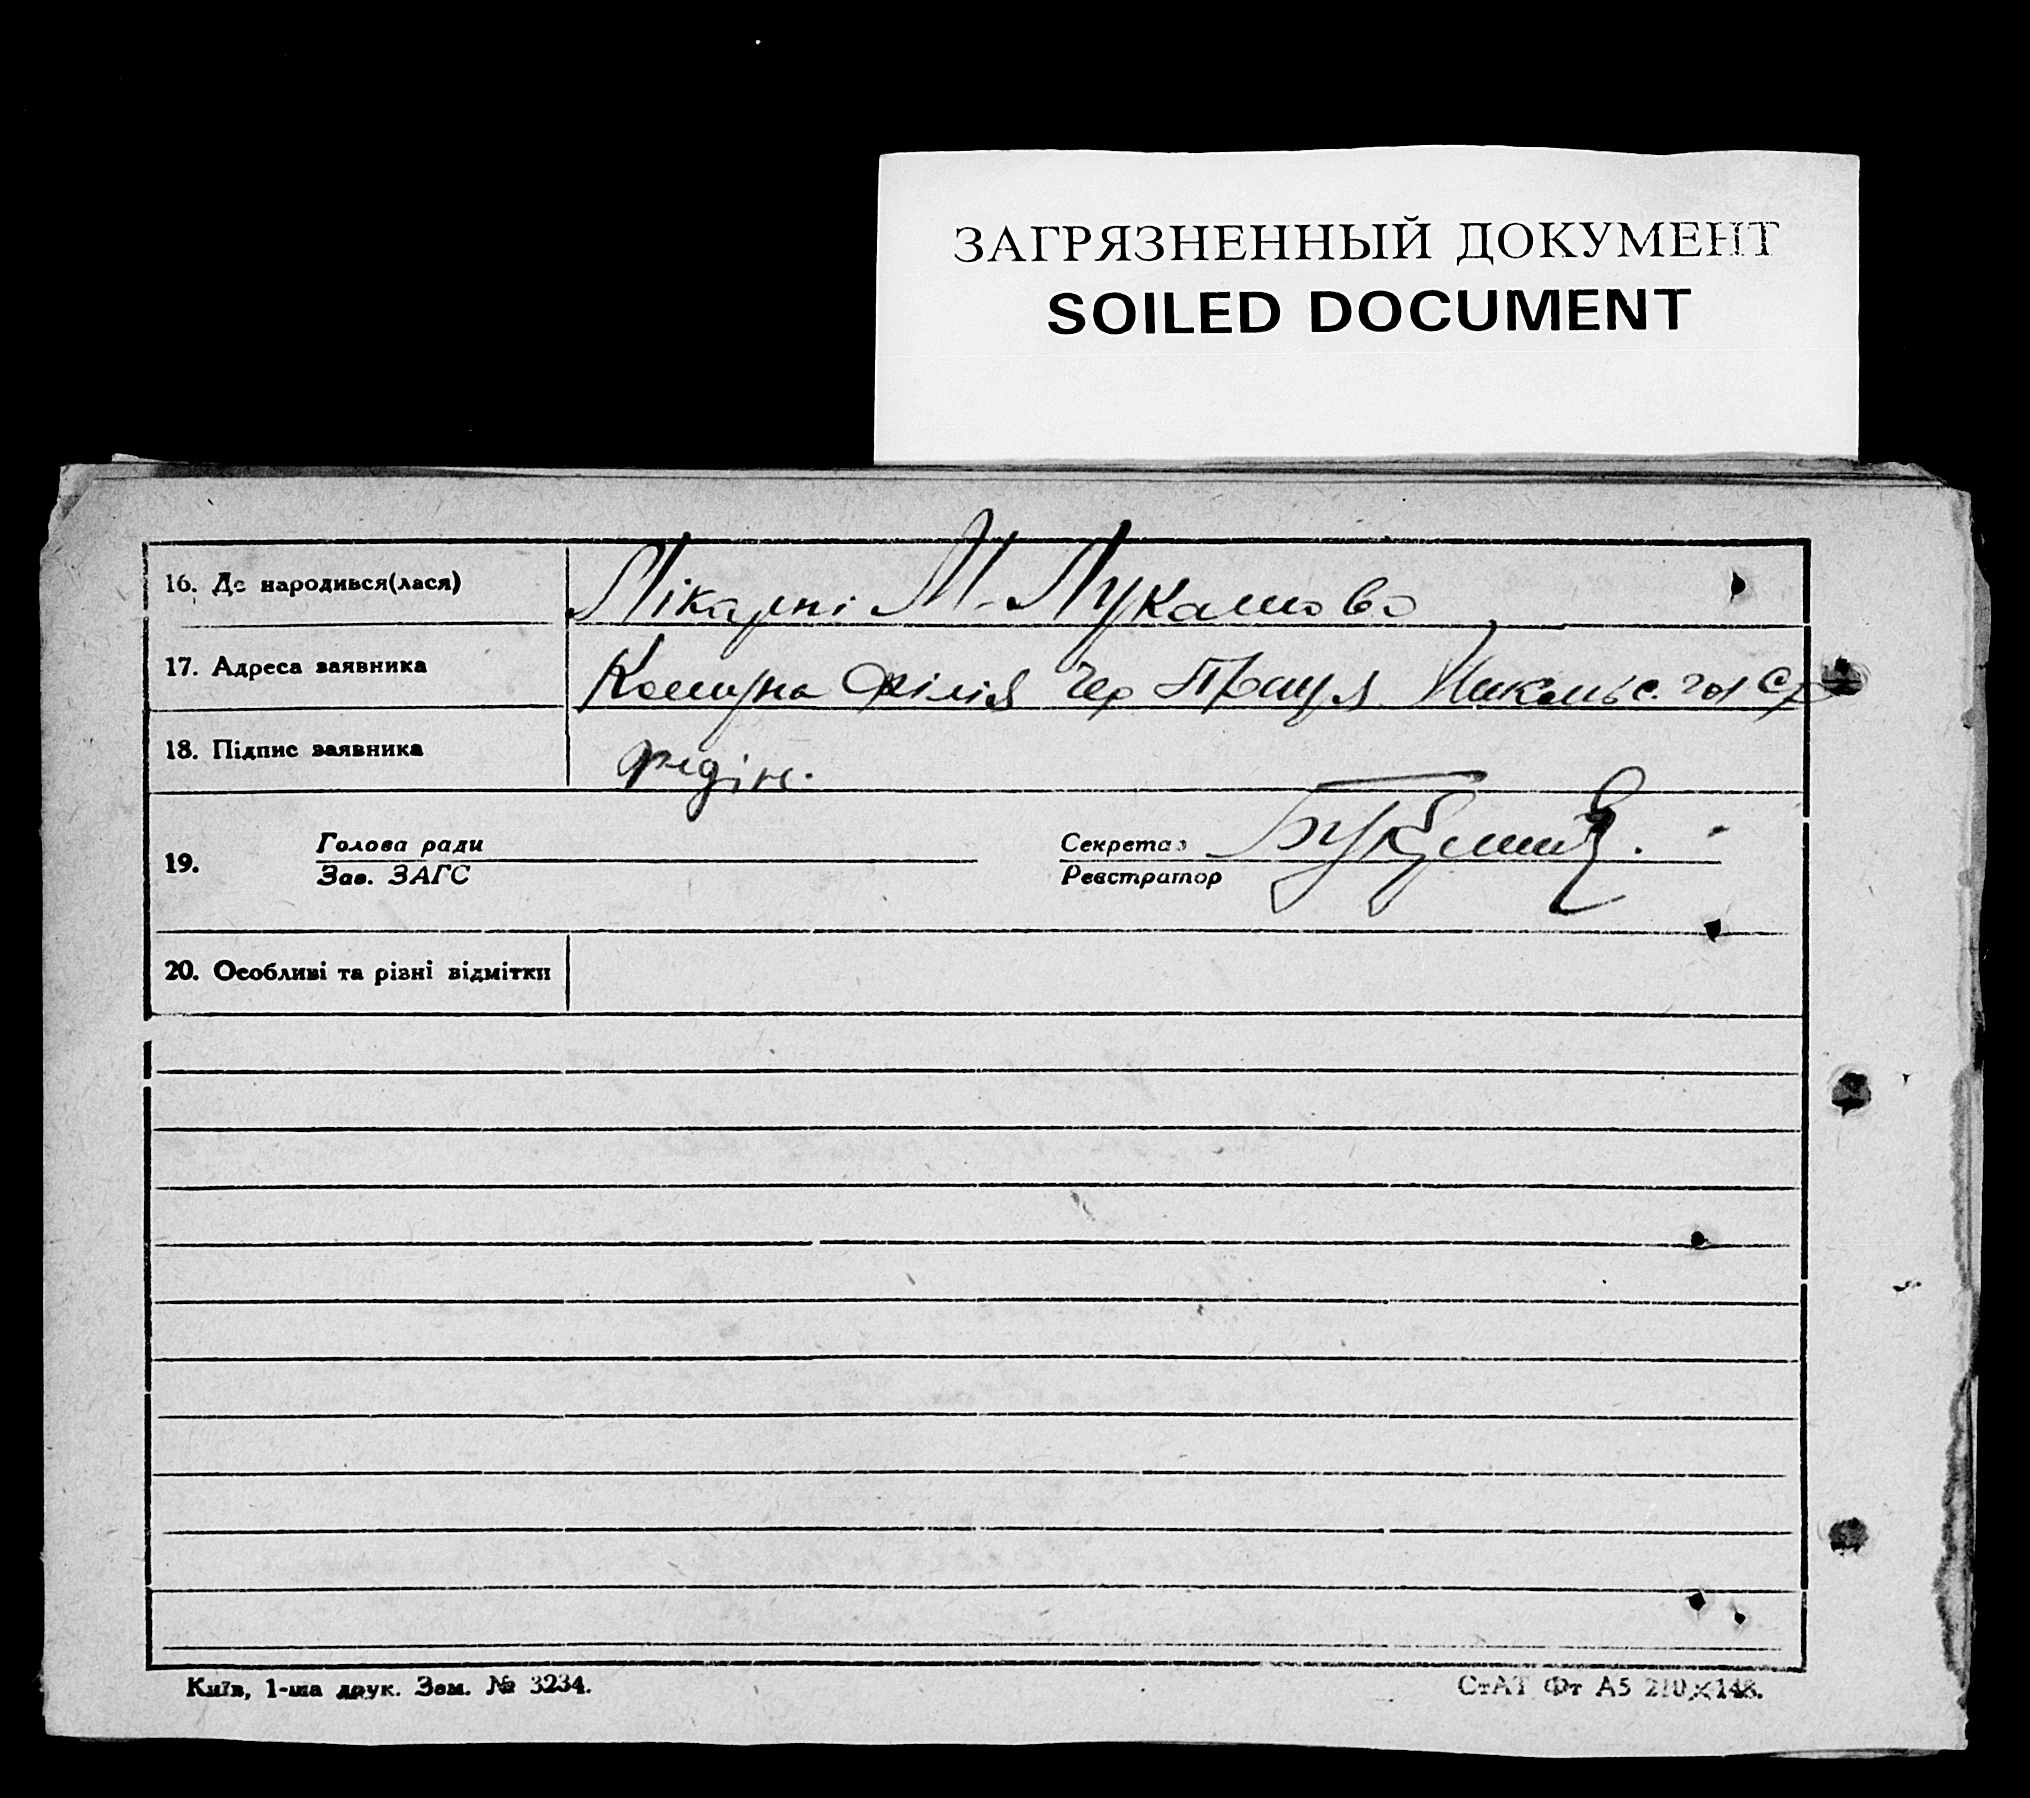 ЗАГРЯЗНЕННЫЙ ДОКУМЕНТ
SOILED DOCUMENT
16. Де народився(лася) Лікарні М-Лукашово
17. Адреса заявника Комуна Філія Чер
18. Підпис заявника
19. Голова ради Секретар
Зав. ЗАГС Реєстратор
20. Особливі та різні відмітки
Київ, 1-ша друк. Зам. № 3234.
СтАТ Фт А5 210×148.